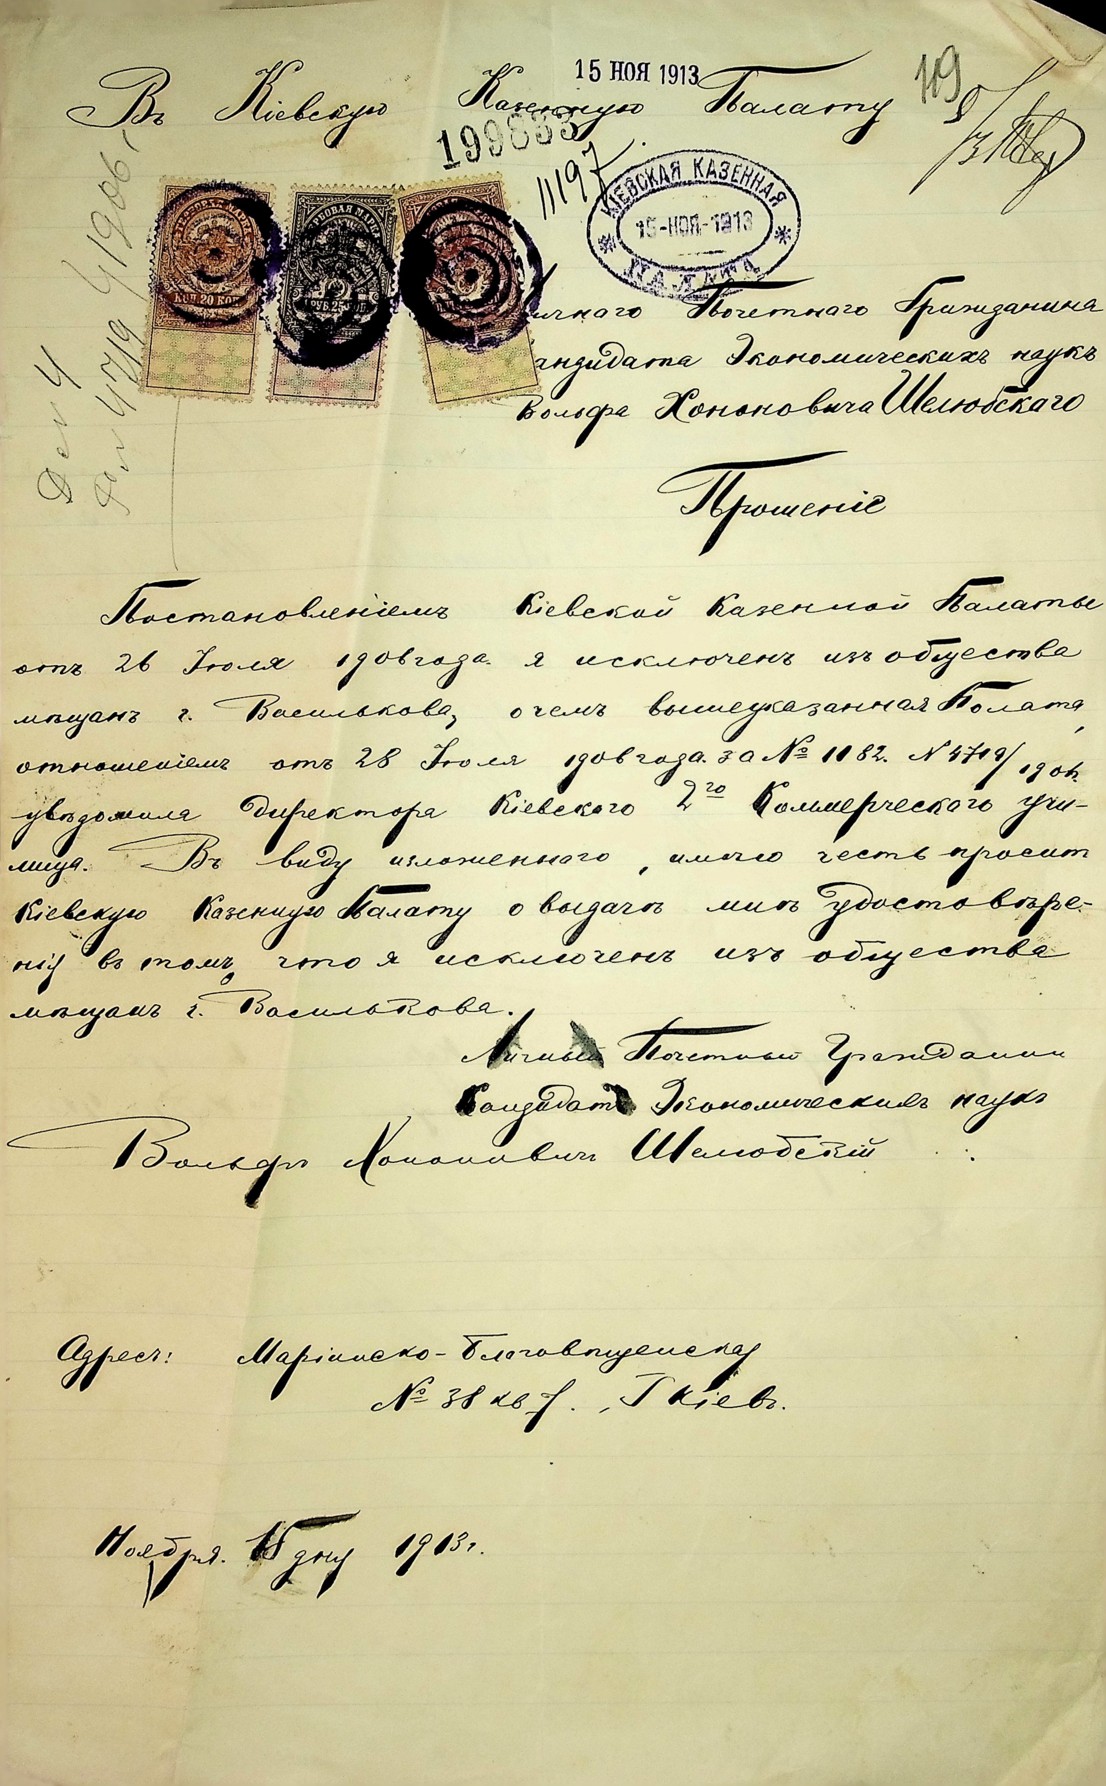 15 НОЯ 1913
119
Въ Кіевскую Казенную Палату
199833
11197
КІЕВСКАЯ КАЗЕННАЯ
15-НОЯ-1913
ПАЛАТА
КОП. 20 КОП.
Дел 4
4719/1906
ичнаго Почетнаго Гражданина
андидата Экономическихъ наукъ
Вольфа Хононовича Шелюбскаго
Прошеніе
Постановленіемъ Кіевской Казенной Палаты
отъ 26 Іюля 1906 года я исключенъ изъ общества
мѣщанъ г. Василькова, о чемъ вышеуказанная Полата,
отношеніемъ отъ 28 Іюля 1906 года за № 1182. N 4719/1906.
увѣдомила директора Кіевскаго 2го Коммерческаго учи-
лища. Въ виду изложеннаго, имѣю честь просит
Кіевскую Казенную Палату о выдачѣ мнѣ удостовѣре-
нія въ томъ, что я исключенъ изъ общества
мѣщанъ г. Василькова.
Личный Почетный Гражданин
Кандидатъ Экономическихъ наукъ
Вольфъ Хононовичъ Шелюбскій
Адресъ: Маріинско-Благовѣщенская
№ 38 кв 7. Г Кіевъ.
Ноября 15 дня 1913 г.